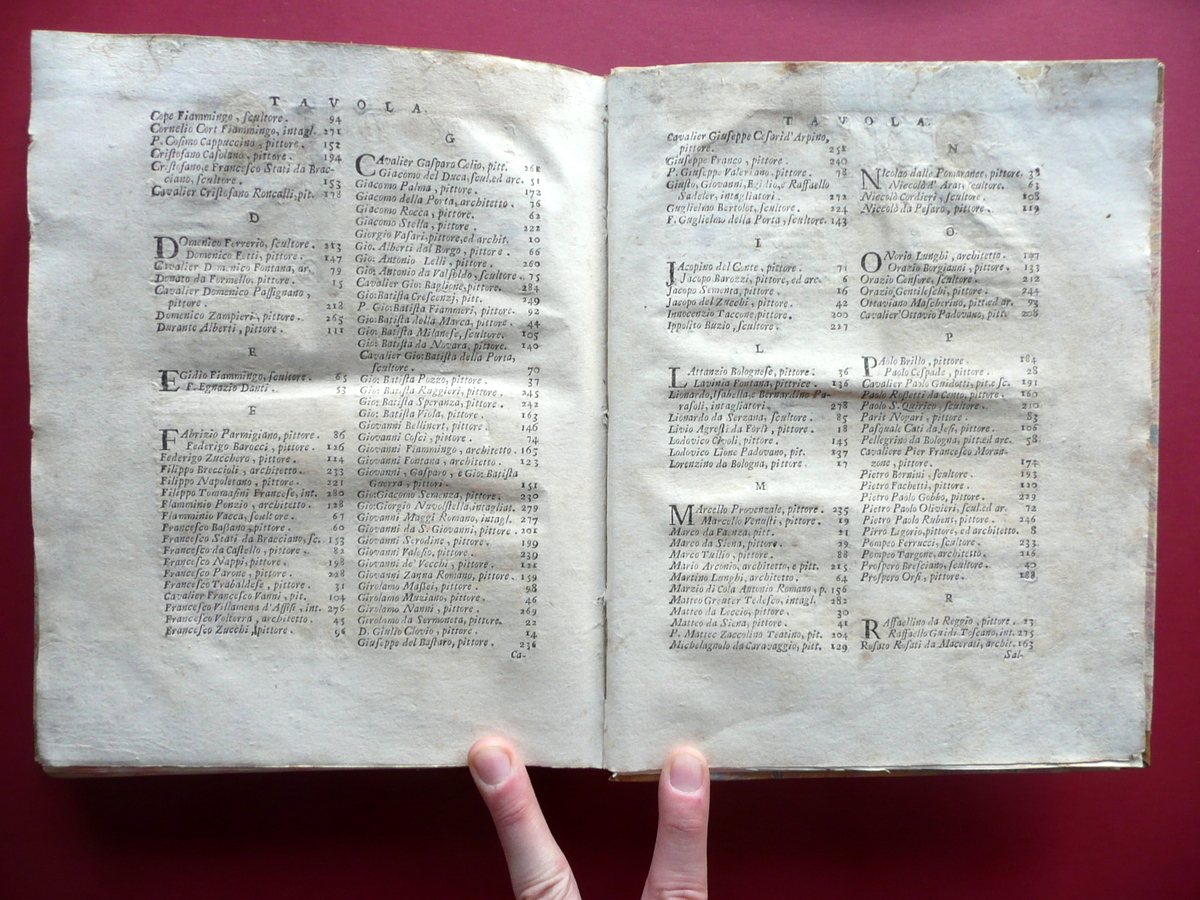 TAVOLA.
Cope Fiammingo, scultore. 94
Cornelio Cort Fiammingo, intagl. 271
P. Cosimo Cappuccino, pittore. 152
Cristofano Casolano, pittore. 194
Cristofano, e Francesco Stati da Brac-
ciano, scultore. 153
Cavalier Cristofano Roncalli, pit. 178
D
Domenico Ferrerio, scultore. 213
Domenico Fetti, pittore. 147
Cavalier Domenico Fontana, ar. 79
Donato da Formello, pittore. 15
Cavalier Domenico Passignano,
pittore. 218
Domenico Zampieri, pittore. 265
Durante Alberti, pittore. 111
E
Egidio Fiammingo, scultore. 65
P. Egnazio Danti. 53
F
Fabrizio Parmigiano, pittore. 86
Federigo Barocci, pittore. 126
Federigo Zucchero, pittore. 114
Filippo Breccioli, architetto. 233
Filippo Napoletano, pittore. 221
Filippo Tommasini Francese, int. 280
Flamminio Ponzio, architetto. 128
Flamminio Vacca, scultore. 67
Francesco Bassano, pittore. 60
Francesco Stati da Bracciano, sc. 153
Francesco da Castello, pittore. 82
Francesco Nappi, pittore. 198
Francesco Parone, pittore. 228
Francesco Trabaldese, pittore. 31
Cavalier Francesco Vanni, pit. 104
Francesco Villamena d'Assisi, int. 276
Francesco Volterra, architetto. 45
Francesco Zucchi, pittore. 96
G
CAvalier Gasparo Celio, pitt. 261
Giacomo del Duca, scul. ed arc. 51
Giacomo Palma, pittore. 172
Giacomo della Porta, architetto. 76
Giacomo Rocca, pittore. 62
Giacomo Stella, pittore. 222
Giorgio Vasari, pittore, ed archit. 10
Gio. Alberti dal Borgo, pittore. 66
Gio. Antonio Lelli, pittore. 260
Gio. Antonio da Valsoldo, scultore. 75
Cavalier Gio: Baglione, pittore. 284
Gio: Batista Crescenzj, pitt. 249
P. Gio: Batista Fiammeri, pittore. 92
Gio: Batista della Marca, pittore. 44
Gio: Batista Milanese, scultore. 105
Gio: Batista da Novara, pittore. 140
Cavalier Gio: Batista della Porta,
scultore. 70
Gio: Batista Pozzo, pittore. 37
Gio: Batista Ruggieri, pittore. 245
Gio: Batista Speranza, pittore. 242
Gio: Batista Viola, pittore. 163
Giovanni Bellinert, pittore. 146
Giovanni Cosci, pittore. 74
Giovanni Fiammingo, architetto. 165
Giovanni Fontana, architetto. 123
Giovanni, Gasparo, e Gio: Batista
Guerra, pittori. 151
Gio: Giacomo Semenza, pittore. 230
Gio: Giorgio Nuvolstella, intagliat. 279
Giovanni Maggi Romano, intagl. 277
Giovanni da S. Giovanni, pittore 201
Giovanni Serodine, pittore. 199
Giovanni Valesio, pittore. 239
Giovanni de' Vecchi, pittore. 121
Giovanni Zanna Romano, pittore. 159
Girolamo Massei, pittore. 98
Girolamo Muziano, pittore. 46
Girolamo Nanni, pittore. 269
Girolamo da Sermoneta, pittore. 22
D. Giulio Clovio, pittore. 14
Giuseppe del Bastaro, pittore. 236
Ca-
TAVOLA.
Cavalier Giuseppe Cesari d'Arpino,
pittore. 251
Giuseppe Franco, pittore. 240
P. Giuseppe Valeriano, pittore. 78
Giusto, Giovanni, Egidio, e Raffaello
Sadeler, intagliatori. 272
Guglielmo Bertolot, scultore. 224
F. Guglielmo della Porta, scultore. 143
I
JAcopino del Conte, pittore. 71
Jacopo Barozzi, pittore, ed arc. 6
Jacopo Sementa, pittore. 16
Jacopo del Zucchi, pittore. 42
Innocenzio Taccone, pittore. 200
Ippolito Buzio, scultore. 227
L
LAttanzio Bolognese, pittore. 36
Lavinia Fontana, pittrice. 136
Lionardo, Isabella, e Bernardino Pa-
rasoli, intagliatori. 278
Lionardo da Serzana, scultore. 85
Livio Agresti da Forlì, pittore. 18
Lodovico Civoli, pittore. 145
Lodovico Lione Padovano, pit. 137
Lorenzino da Bologna, pittore. 17
M
MArcello Provenzale, pittore. 235
Marcello Venusti, pittore. 19
Marco da Faenza, pitt. 21
Marco da Siena, pittore. 29
Marco Tullio, pittore. 88
Mario Arconio, architetto, e pitt. 215
Martino Lunghi, architetto. 64
Marzio di Cola Antonio Romano, p. 156
Matteo Greuter Tedesco, intagl. 282
Matteo da Leccio, pittore. 30
Matteo da Siena, pittore. 41
P. Matteo Zaccolino Teatino, pit. 204
Michelagnolo da Caravaggio, pitt. 129
N
NIccolao dalle Pomarance, pittore. 38
Niccolò d'Aras, scultore. 63
Niccolò Cordieri, scultore. 108
Niccolò da Pesaro, pittore. 119
O
ONorio Lunghi, architetto. 147
Orazio Borgianni, pittore. 133
Orazio Censore, scultore. 212
Orazio Gentileschi, pittore. 244
Ottaviano Mascherino, pitt. ed ar. 93
Cavalier' Ottavio Padovano, pitt. 208
P
PAolo Brillo, pittore. 184
Paolo Cespade, pittore. 28
Cavalier Paolo Guidotti, pit. e sc. 191
Paolo Rossetti da Cento, pittore. 160
Paolo S. Quirico, scultore. 210
Paris Nogari, pittore. 83
Pasquale Cati da Jesi, pittore. 106
Pellegrino da Bologna, pitt. ed arc. 58
Cavaliere Pier Francesco Moran-
zone, pittore. 174
Pietro Bernini, scultore. 193
Pietro Fachetti, pittore. 120
Pietro Paolo Gobbo, pittore. 229
Pietro Paolo Olivieri, scul. ed ar. 72
Pietro Paolo Rubent, pittore. 246
Pirro Ligorio, pittore, ed architetto. 8
Pompeo Ferrucci, scultore. 233
Pompeo Targone, architetto. 216
Prospero Bresciano, scultore. 40
Prospero Orsi, pittore. 188
R
RAffaellino da Reggio, pittore. 23
Raffaello Guidi Toscano, int. 275
Rosato Rosati da Macerati, archit. 163
Sal-